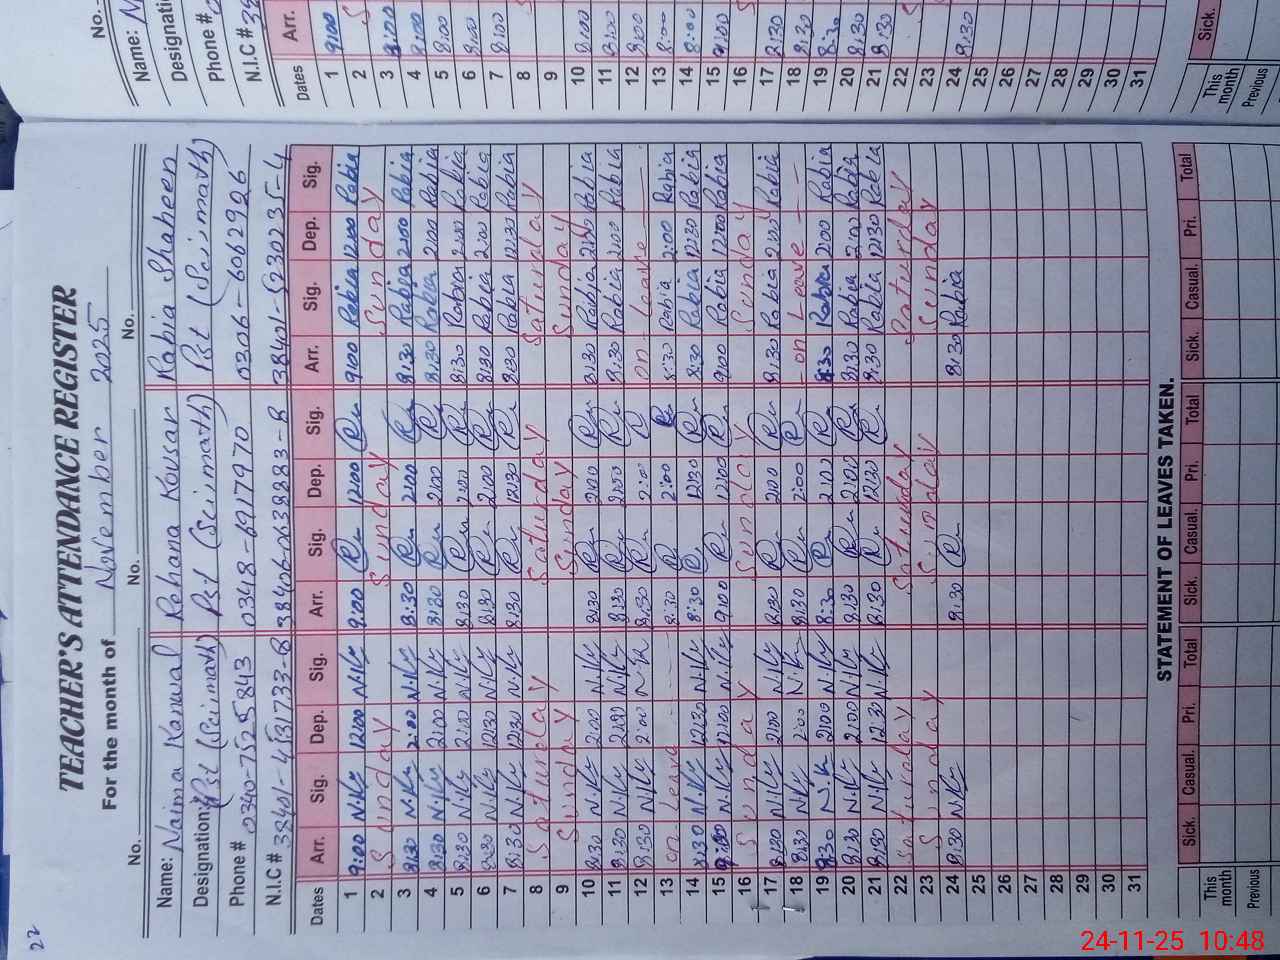 22
TEACHER'S ATTENDANCE REGISTER
For the month of November 2025
No. No. No.
Name: Naima Kanwal Rehana Kousar Rabia Shaheen
Designation: Pst (Sci math) Pst (Sci math) Pst (Sci math)
Phone # 0340-7525843 0348-6917970 0306-6062996
N.I.C #
Dates Arr. Sig. Dep. Sig. Arr. Sig. Dep. Sig. Arr. Sig. Dep. Sig.
1 9:00 N.K 12:00 N.K 9:00 12:00 9:00 Rabia 12:00 Rabia
2 Sunday Sunday Sunday
3 8:30 N.K 2:00 N.K 8:30 2:00 8:30 Rabia 2:00 Rabia
4 8:30 N.K 2:00 N.K 8:30 2:00 8:30 Rabia 2:00 Rabia
5 8:30 N.K 2:00 N.K 8:30 2:00 8:30 Rabia 2:00 Rabia
6 8:30 N.K N.K 8:30 2:00 8:30 Rabia 2:00 Rabia
7 8:30 N.K 12:30 N.K 8:30 12:30 8:30 Rabia 12:30 Rabia
8 Saturday Saturday Saturday
9 Sunday Sunday Sunday
10 8:30 N.K 2:00 N.K 8:30 2:00 8:30 Rabia 2:00 Rabia
11 8:30 N.K 2:00 N.K 8:30 2:00 8:30 Rabia 2:00 Rabia
12 8:30 N.K 2:00 N.K 8:30 2:00 on Leave
13 on Leave 8:30 2:00 8:30 Rabia 2:00 Rabia
14 8:30 N.K 12:30 N.K 8:30 12:30 8:30 Rabia 12:30 Rabia
15 9:00 N.K 12:00 N.K 9:00 12:00 9:00 Rabia 12:00 Rabia
16 Sunday Sunday Sunday
17 8:30 N.K 2:00 N.K 8:30 2:00 8:30 Rabia 2:00 Rabia
18 8:30 N.K 2:00 N.K 8:30 2:00 on Leave
19 8:30 N.K 2:00 N.K 8:30 2:00 8:30 Rabia 2:00 Rabia
20 8:30 N.K 2:00 N.K 8:30 2:00 8:30 Rabia 2:00 Rabia
21 8:30 N.K 12:30 N.K 8:30 12:30 8:30 Rabia 12:30 Rabia
22 Saturday Saturday Saturday
23 Sunday Sunday Sunday
24 8:30 N.K 8:30 8:30 Rabia
25
26
27
28
29
30
31
STATEMENT OF LEAVES TAKEN.
Sick. Casual. Pri. Total Sick. Casual. Pri. Total Sick. Casual. Pri. Total
This month
Previous
No.
Name:
Designation
Phone #
N.I.C #
Dates Arr.
1 9:00
2
3 8:00
4 8:00
5 8:00
6 8:00
7 8:00
8
9
10 8:00
11 8:00
12 8:00
13 8:00
14 8:00
15 9:00
16
17 8:30
18 8:30
19 8:30
20 8:30
21 8:30
22
23
24 8:30
25
26
27
28
29
30
31
Sick.
This month
Previous
24-11-25 10:48